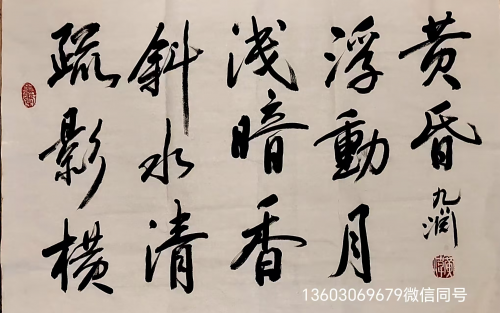 疏影横
斜水清
浅暗香
浮動月
黄昏
九
13603069679微信同号